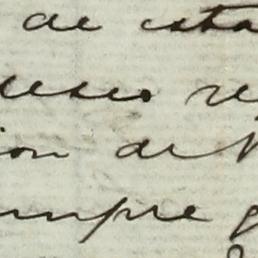 de esta
deseo re
ion de N
empre g